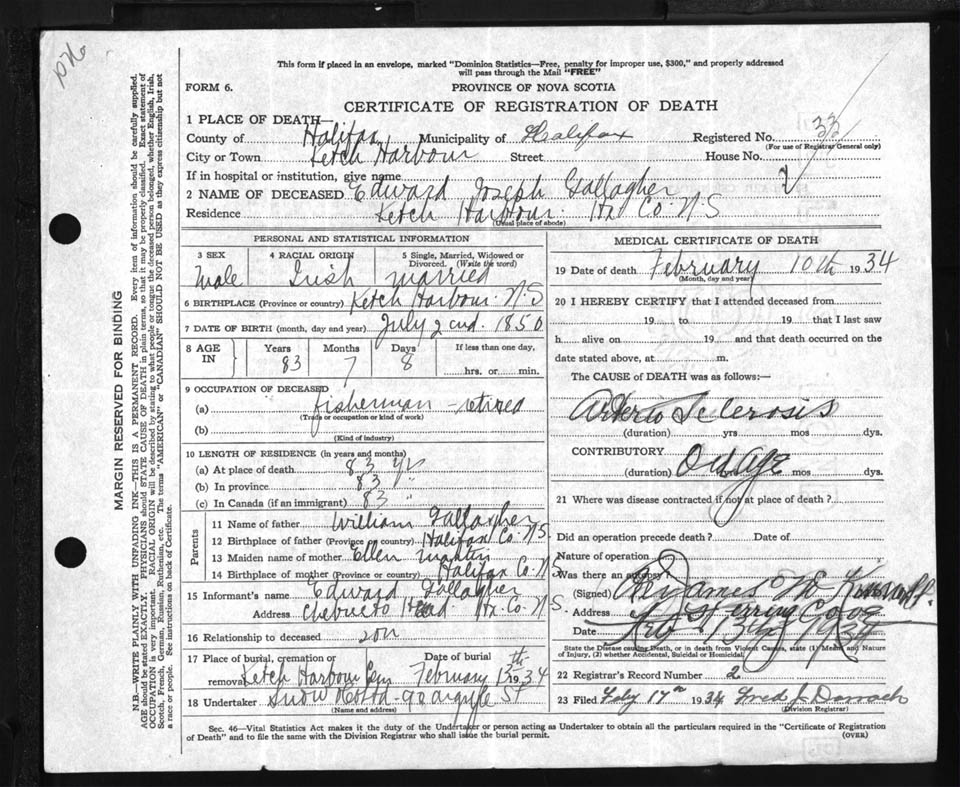 This form if placed in an envelope, marked "Dominion Statistics—Free, penalty for improper use, $300," and properly addressed
will pass through the Mail "FREE"
FORM 6.
PROVINCE OF NOVA SCOTIA
CERTIFICATE OF REGISTRATION OF DEATH
1 PLACE OF DEATH—
County of Halifax Municipality of Halifax Registered No. 33
(For use of Registrar General only)
City or Town Ketch Harbour Street House No.
If in hospital or institution, give name
2 NAME OF DECEASED Edward Joseph Gallagher
Residence Ketch Harbour. Hx Co. N.S
(Usual place of abode)
PERSONAL AND STATISTICAL INFORMATION
3 SEX 4 RACIAL ORIGIN 5 Single, Married, Widowed or
Divorced. (Write the word)
Male Irish married
6 BIRTHPLACE (Province or country) Ketch Harbour. N.S
7 DATE OF BIRTH (month, day and year) July 2 cnd. 1850
8 AGE IN Years Months Days If less than one day,
83 7 8 hrs. or min.
9 OCCUPATION OF DECEASED
(a) fisherman - retired
(Trade or occupation or kind of work)
(b)
(Kind of industry)
10 LENGTH OF RESIDENCE (in years and months)
(a) At place of death 83 yr
(b) In province 83 "
(c) In Canada (if an immigrant) 83 "
Parents
11 Name of father William Gallagher
12 Birthplace of father (Province or country) Halifax Co. N.S
13 Maiden name of mother Ellen Martin
14 Birthplace of mother (Province or country) Halifax Co. N.S
15 Informant's name Edward Gallagher
Address Chebucto Head. Hx. Co. N.S
16 Relationship to deceased son
17 Place of burial, cremation or removal Date of burial
Ketch Harbour Cem February 13th 1934
18 Undertaker Snow & Co Ltd - 90 argyle St
(Name and address)
MEDICAL CERTIFICATE OF DEATH
19 Date of death February 10th 1934
(Month, day and year)
20 I HEREBY CERTIFY that I attended deceased from
19 to 19 that I last saw
h alive on 19 and that death occurred on the
date stated above, at m.
The CAUSE of DEATH was as follows:—
Arterio Sclerosis
(duration) yrs mos dys.
CONTRIBUTORY Old Age
(duration) yrs mos dys.
21 Where was disease contracted if not at place of death?
Did an operation precede death? Date of
Nature of operation
Was there an autopsy?
(Signed) James
Address Herring Cove
Date 13th 1934
State the Disease causing Death, or in death from Violent Causes, state (1) Means and Nature
of Injury, (2) whether Accidental, Suicidal or Homicidal.
22 Registrar's Record Number 2
23 Filed Feby 17th 1934 Fred J. Darrach
(Division Registrar)
Sec. 46—Vital Statistics Act makes it the duty of the Undertaker or person acting as Undertaker to obtain all the particulars required in the "Certificate of Registration
of Death" and to file the same with the Division Registrar who shall issue the burial permit.
(OVER)
MARGIN RESERVED FOR BINDING
N.B.—WRITE PLAINLY WITH UNFADING INK—THIS IS A PERMANENT RECORD. Every item of information should be carefully supplied.
AGE should be stated EXACTLY. PHYSICIANS should STATE CAUSE OF DEATH in plain terms, so that it may be properly classified. Exact statement of
OCCUPATION is very important. RACIAL ORIGIN will be described by stating to what people or tongue the deceased person belonged, whether English, Irish,
Scotch, French, German, Russian, Ruthenian, etc. The terms "AMERICAN" or "CANADIAN" SHOULD NOT BE USED as they express citizenship but not
a race or people. See instructions on back of Certificate.